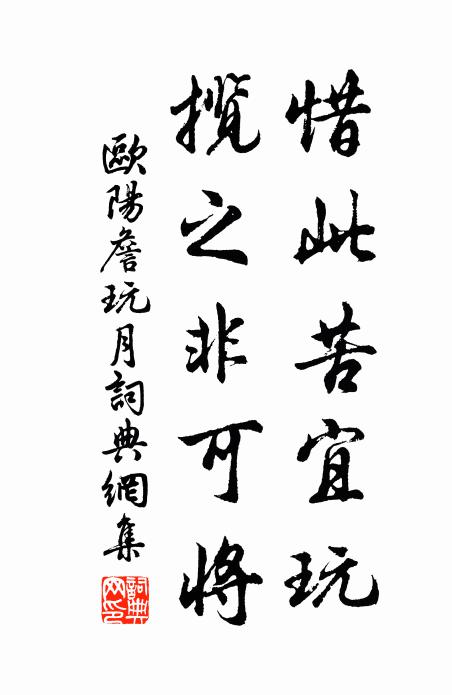 惜此苦宜玩
攬之非可將
歐陽詹玩月詞典網集
詞典網印